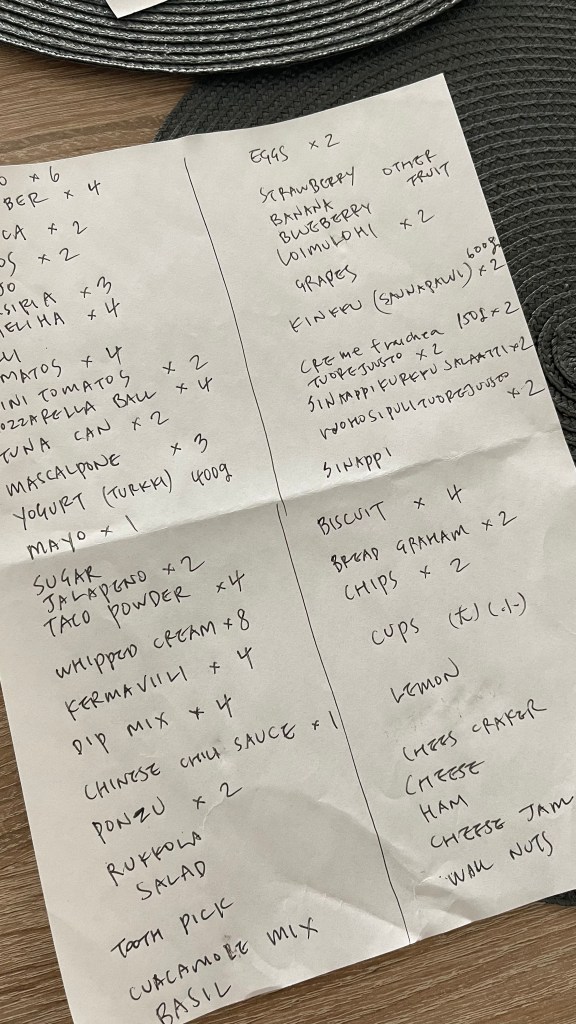 × 6
BER × 4
CA × 2
OS × 2
SIRIA × 3
ELIHA × 4
MATOS × 4
INI TOMATOS × 2
OZZARELLA BALL × 4
TUNA CAN × 2
MASCALPONE × 3
YOGURT (TURKKI) 400g
MAYO × 1
SUGAR
JALAPENO × 2
TACO POWDER × 4
WHIPPED CREAM × 8
KERMAVIILI × 4
DIP MIX × 4
CHINESE CHILI SAUCE × 1
PONZU × 2
RUKKOLA
SALAD
TOOTH PICK
CUACAMOLE MIX
BASIL
EGGS × 2
STRAWBERRY OTHER FRUIT
BANANA
BLUEBERRY
LOIMULOHI × 2
GRAPES
KINKKU (SAUNAPALVI) 600g × 2
CREme fraichea 150g × 2
TUOREJUUSTO × 2
SINAPPIKURKKU SALAATTI × 2
RUOHOSIPULITUOREJUUSTO × 2
SINAPPI
BISCUIT × 4
BREAD GRAHAM × 2
CHIPS × 2
CUPS (大) (小)
LEMON
CHEES CRAKER
CHEESE
HAM
CHEESE JAM
WALL NUTS